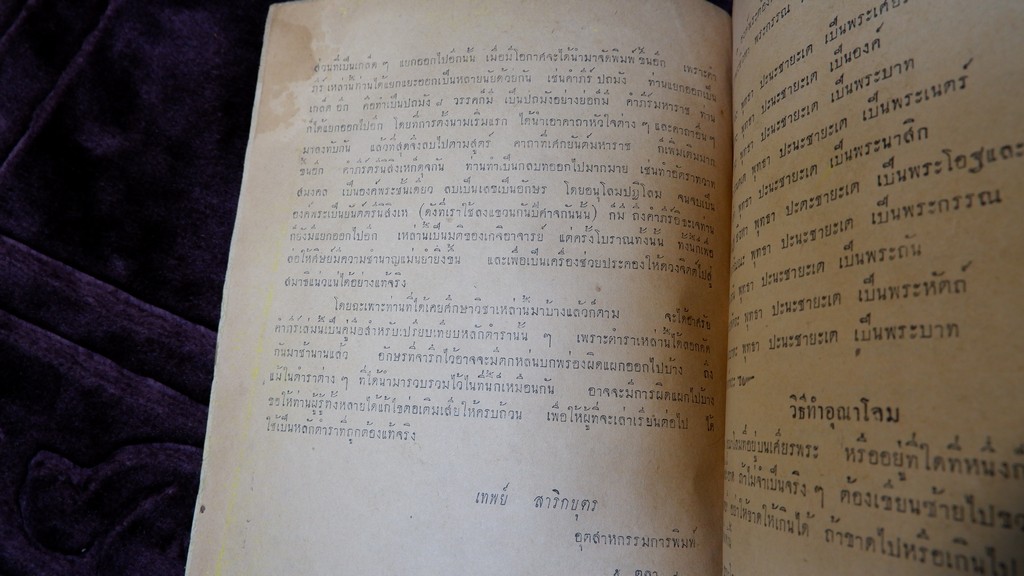 ส่วนที่เป็นเกล็ด ๆ แยกออกไปอีกนั้น เมื่อมีโอกาศจะได้นำมาจัดพิมพ์ขึ้นอีก เพราะคำ
ภีร์เหล่านี้ท่านได้แยกแยะออกเป็นหลายนัยด้วยกัน เช่นคำภีร์ ปถมัง ท่านแยกออกเป็น
เกล็ด อีก คือทำเป็นปถมัง ๘ วรรคก็มี เป็นปถมังอย่างย่อก็มี คำภีร์มหาราช ท่าน
ก็ได้แยกออกไปอีก โดยที่การตั้งนามเริ่มแรก ได้นำเอาคาถาหัวใจต่าง ๆ และคาถาอื่น ๆ
มาลงทับกัน แล้วที่สุดจึงลบไปตามสูตร์ คาถาที่เศกยันต์มหาราช ก็เพิ่มเติมมาก
ขึ้นอีก คำภีร์ตรีนิสิงเหก็ดุจกัน ท่านทำเป็นกลบทออกไปมากมาย เช่นทำอัตราทวาท
สมงคล เป็นองค์พระชั้นเดียว ลบเป็นเลขเป็นอักษร โดยอนุโลมปฏิโลม จนจบเป็น
องค์พระเป็นยันต์ตรีนิสิงเห (ดังที่เราใช้ลงแขวนกันปีคำจกันนั้น) ก็มี ถึงคำภีร์อิธะเจท่าน
ก็ยังมีแยกออกไปอีก เหล่านี้เป็นมติของเกจิอาจารย์ แต่ครั้งโบราณทั้งนั้น ทั้งนี้ก็เพื่อ
ล่อให้ศิษย์มีความชำนาญแม่นยำยิ่งขึ้น และเพื่อเป็นเครื่องช่วยประคองให้ดวงจิตต์ไปสู่
สมาธิแน่วแน่ได้อย่างแท้จริง
โดยฉะเพาะท่านที่ได้เคยศึกษาวิชาเหล่านี้มาบ้างแล้วก็ตาม จะได้อาศรัย
คำภีร์เล่มนี้เป็นคู่มือสำหรับเปรียบเทียบหลักตำรานั้น ๆ เพราะตำราเหล่านี้ได้ลอกคัด
กันมาช้านานแล้ว อักษรที่จารึกไว้อาจจะมีตกหล่นบกพร่องผิดแผกออกไปบ้าง ถึง
แม้ในตำราต่าง ๆ ที่ได้นำมารวบรวมไว้ในที่นี้ก็เหมือนกัน อาจจะมีการผิดแผกไปบ้าง
ขอให้ท่านผู้รู้ทั้งหลายได้แก้ไขต่อเติมเสียให้ครบถ้วน เพื่อให้ผู้ที่จะเล่าเรียนต่อไป ได้
ใช้เป็นหลักตำราที่ถูกต้องแท้จริง
เทพย์ สาริกบุตร
อุตสาหกรรมการพิมพ์
พุทธา ปะนะชายะเต เป็นพระเศียร
พุทธา ปะนะชายะเต เป็นองค์
พุทธา ปะนะชายะเต เป็นพระบาท
พุทธา ปะนะชายะเต เป็นพระเนตร์
พุทธา ปะนะชายะเต เป็นพระนาสิก
พุทธา ปะตะชายะเต เป็นพระโอฐและ
พุทธา ปะนะชายะเต เป็นพระกรรณ
พุทธา ปะนะชายะเต เป็นพระถัน
พุทธา ปะนะชายะเต เป็นพระหัตถ์
พุทธา ปะนะชายะเต เป็นพระบาท
วิธีทำอุณาโลม
ที่อยู่บนเศียรพระ หรืออยู่ที่ใดที่หนึ่งก็
ถ้าไม่จำเป็นจริง ๆ ต้องเขียนซ้ายไปขวา
อย่าให้ขาดให้เกินได้ ถ้าขาดไปหรือเกินไป